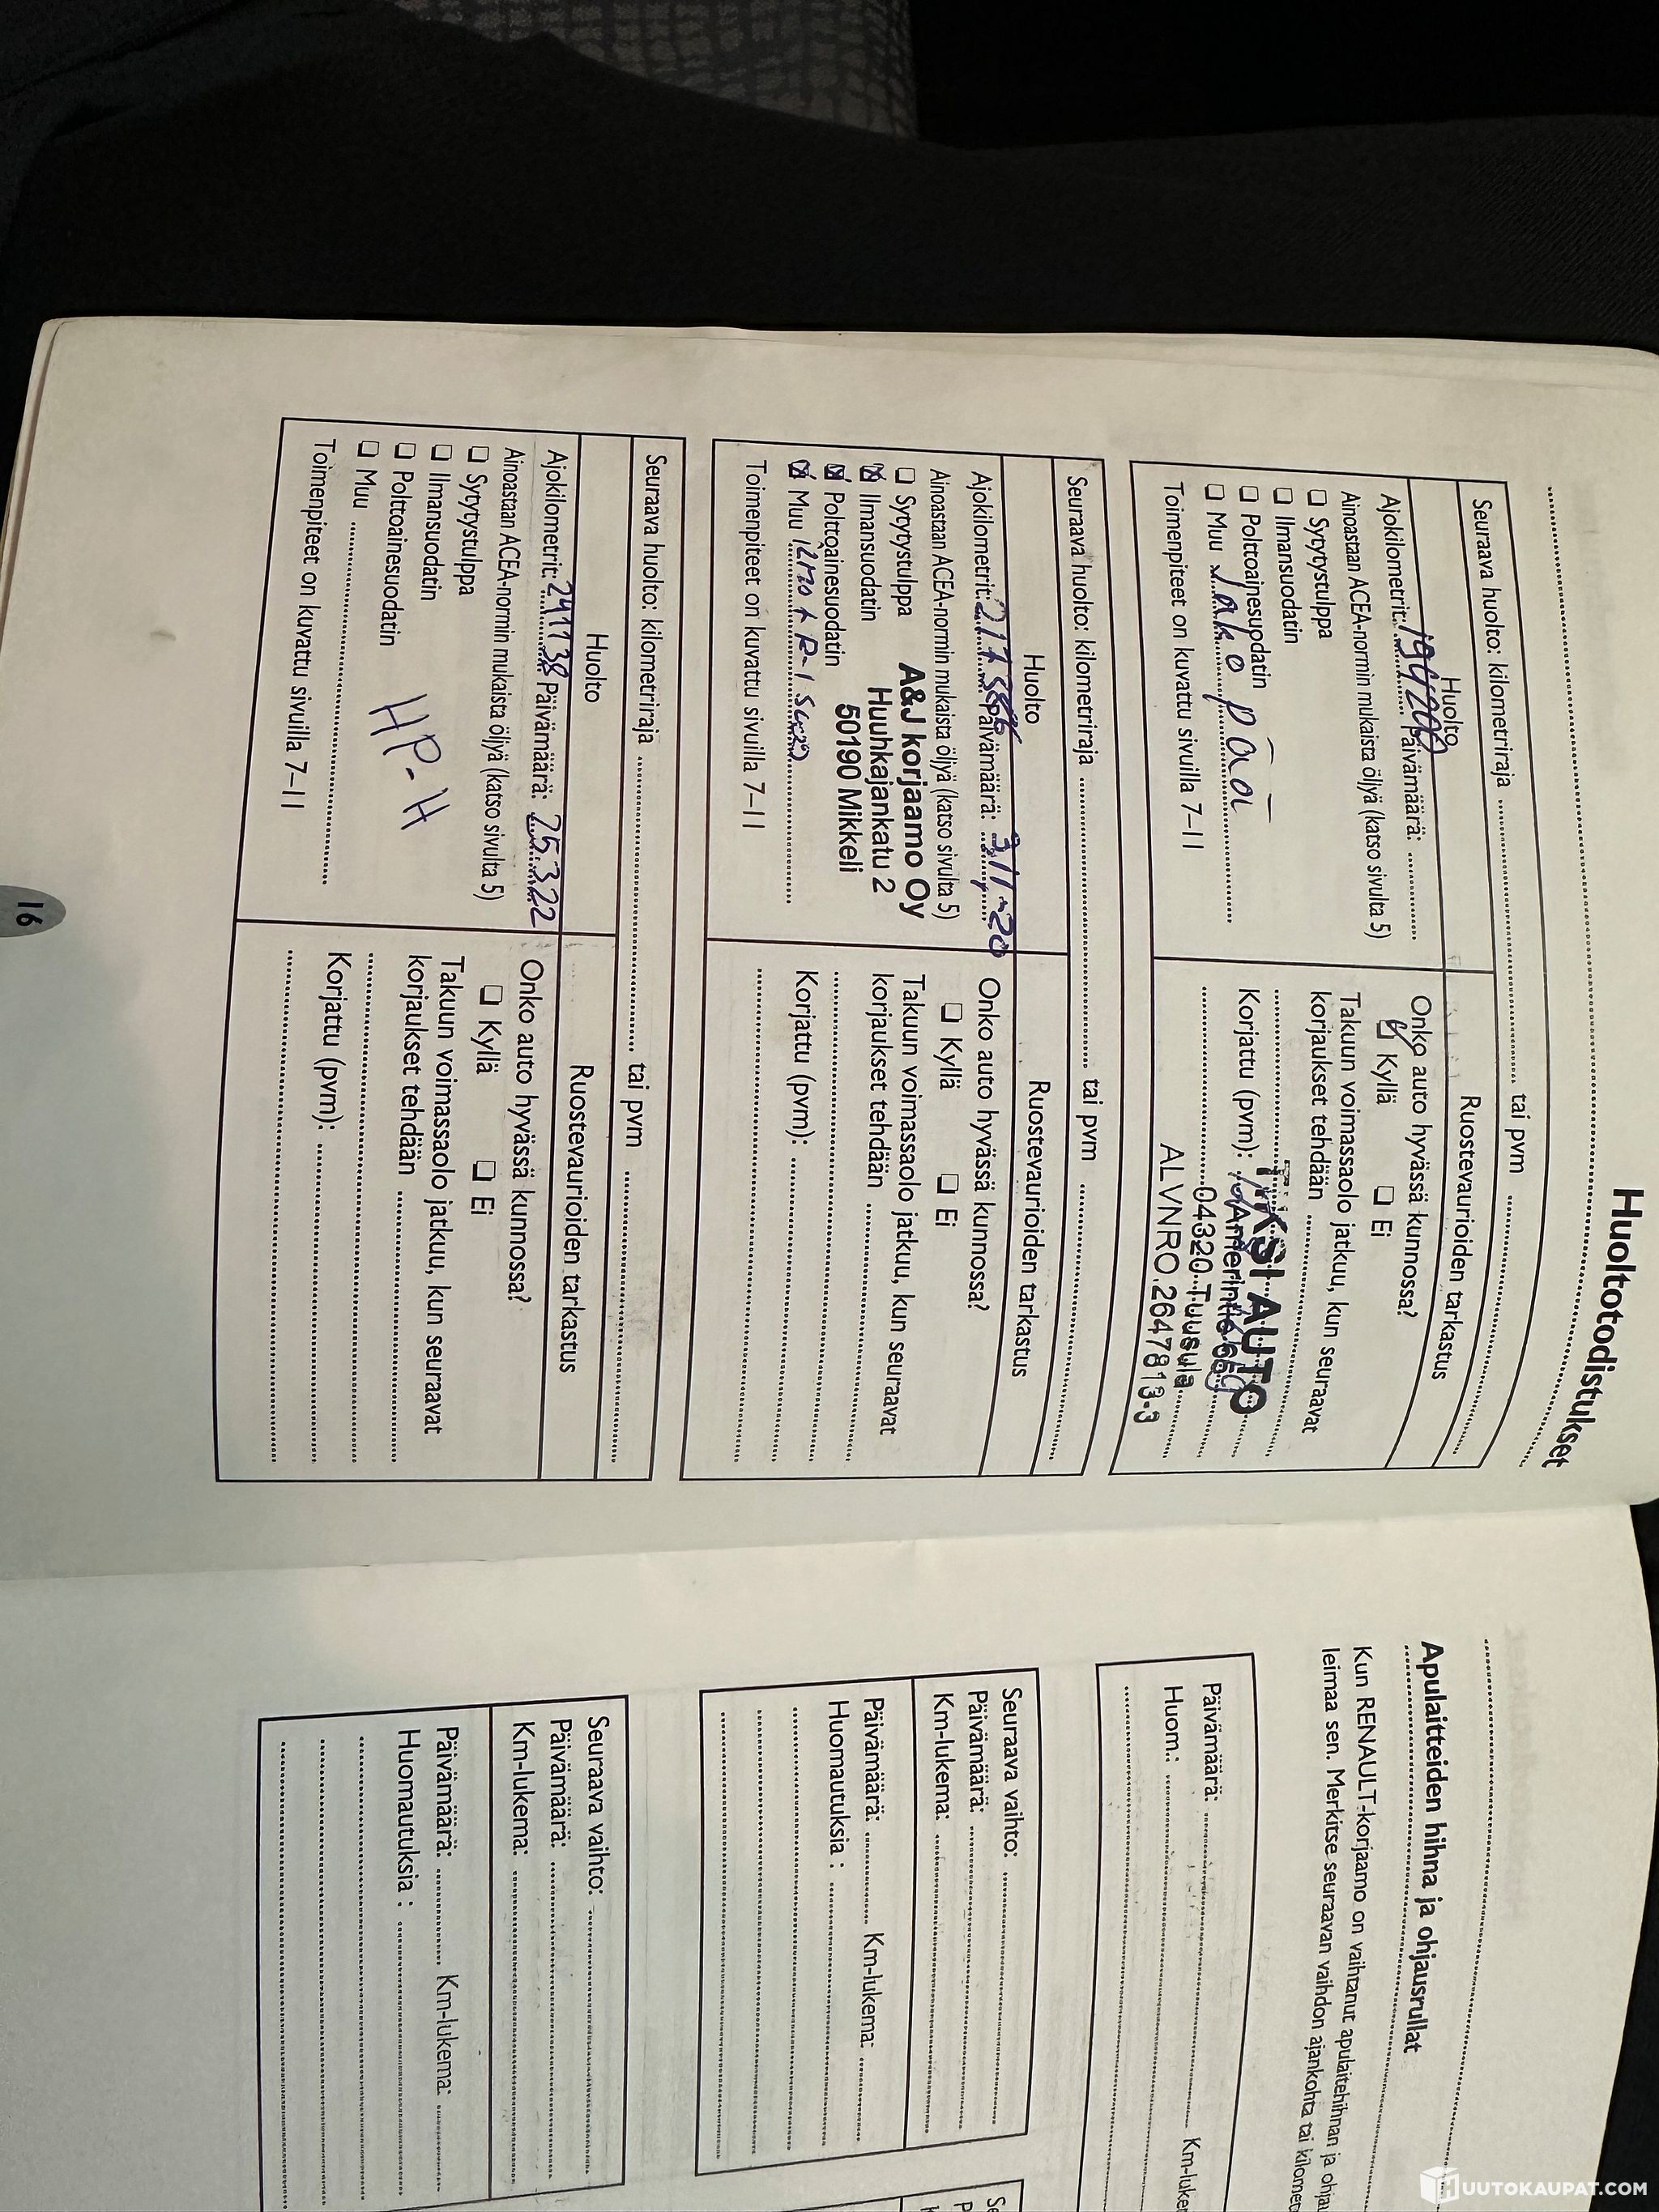 Huoltotodistukset
Seuraava huolto: kilometriraja ........ tai pvm ........
Huolto
Ruostevaurioiden tarkastus
Ajokilometrit: 194200 Päivämäärä: ........
Ainoastaan ACEA-normin mukaista öljyä (katso sivulta 5)
☐ Sytytystulppa
☐ Ilmansuodatin
☐ Polttoainesuodatin
☐ Muu Jako pää
Toimenpiteet on kuvattu sivuilla 7–11
Onko auto hyvässä kunnossa?
☑ Kyllä ☐ Ei
Takuun voimassaolo jatkuu, kun seuraavat
korjaukset tehdään ........
Korjattu (pvm):
AUTO
04320 Tuusula
ALVNRO.2647813-3
Seuraava huolto: kilometriraja ........ tai pvm ........
Huolto
Ruostevaurioiden tarkastus
Ajokilometrit: Päivämäärä: 3/11-20
Ainoastaan ACEA-normin mukaista öljyä (katso sivulta 5)
☐ Sytytystulppa
☒ Ilmansuodatin
☒ Polttoainesuodatin
☒ Muu
A&J korjaamo Oy
Huuhkajankatu 2
50190 Mikkeli
Toimenpiteet on kuvattu sivuilla 7–11
Onko auto hyvässä kunnossa?
☐ Kyllä ☐ Ei
Takuun voimassaolo jatkuu, kun seuraavat
korjaukset tehdään ........
Korjattu (pvm): ........
Seuraava huolto: kilometriraja ........ tai pvm ........
Huolto
Ruostevaurioiden tarkastus
Ajokilometrit: 241138 Päivämäärä: 25.3.22
Ainoastaan ACEA-normin mukaista öljyä (katso sivulta 5)
☐ Sytytystulppa
☐ Ilmansuodatin
☐ Polttoainesuodatin
☐ Muu ........
HP-H
Toimenpiteet on kuvattu sivuilla 7–11
Onko auto hyvässä kunnossa?
☐ Kyllä ☐ Ei
Takuun voimassaolo jatkuu, kun seuraavat
korjaukset tehdään ........
Korjattu (pvm): ........
16
Apulaitteiden hihna ja ohjausrullat
Kun RENAULT-korjaamo on vaihtanut apulaitehihnan ja ohjau
leimaa sen. Merkitse seuraavan vaihdon ajankohta tai kilomet
Päivämäärä: ........ Km-luke
Huom.: ........
Seuraava vaihto: ........
Päivämäärä: ........
Km-lukema: ........
Päivämäärä: ........ Km-lukema: ........
Huomautuksia : ........
Se
P
Seuraava vaihto: ........
Päivämäärä: ........
Km-lukema: ........
Päivämäärä: ........ Km-lukema: ........
Huomautuksia : ........
HUUTOKAUPAT.COM